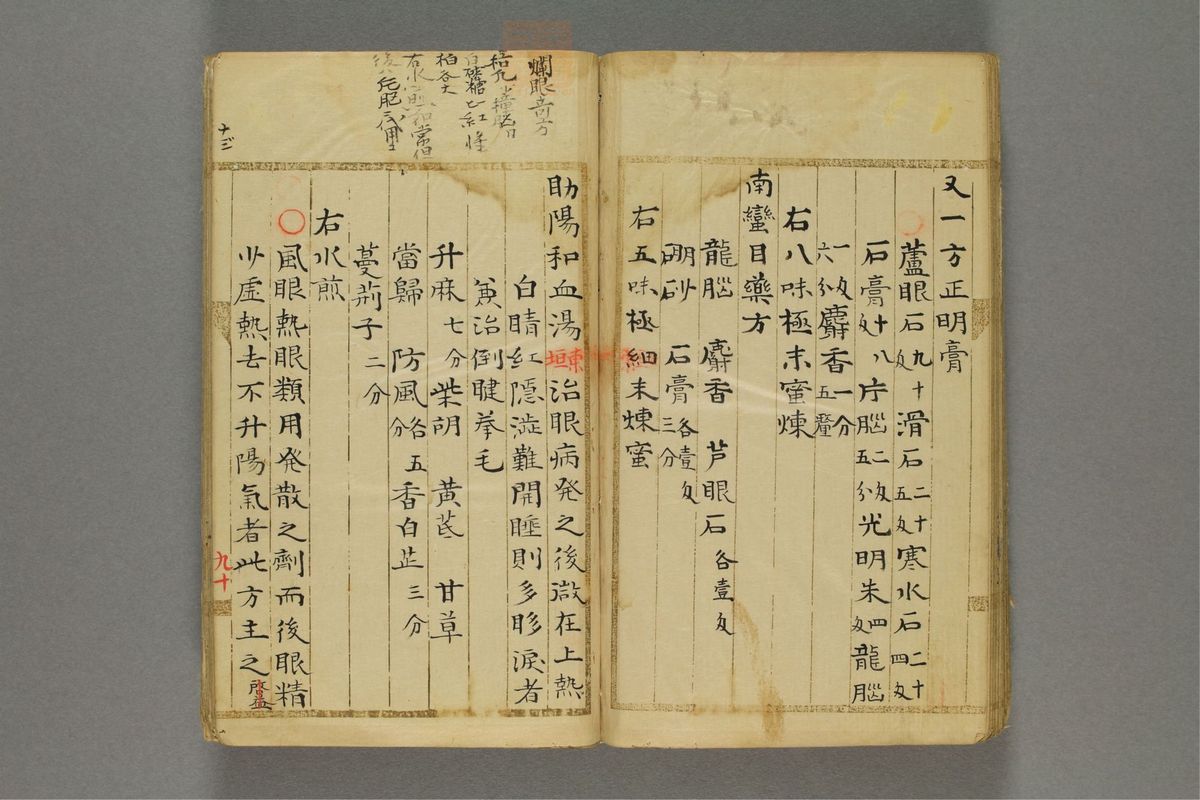 又一方正明膏
蘆眼石九十匁滑石二十五匁寒水石二十四匁
石膏十八匁片腦二匁五分光明朱四匁龍腦
一匁六分麝香一分五釐
右八味極末蜜煉
南蠻目藥方
龍腦 麝香 芦眼石各壹匁
硼砂 石膏各壹匁三分
右五味極細末煉蜜
助陽和血湯東垣治眼病発之後微在上熱
白睛紅隱澁難開睡則多眵淚者
兼治倒睫拳毛
升麻七分柴胡 黃芪 甘草
當歸 防風各五分香白芷三分
蔓荊子二分
右水煎
風眼熱眼類用発散之劑而後眼精
少虛熱去不升陽氣者此方主之啓益
九十
爛眼奇方
白砂糖匕紅